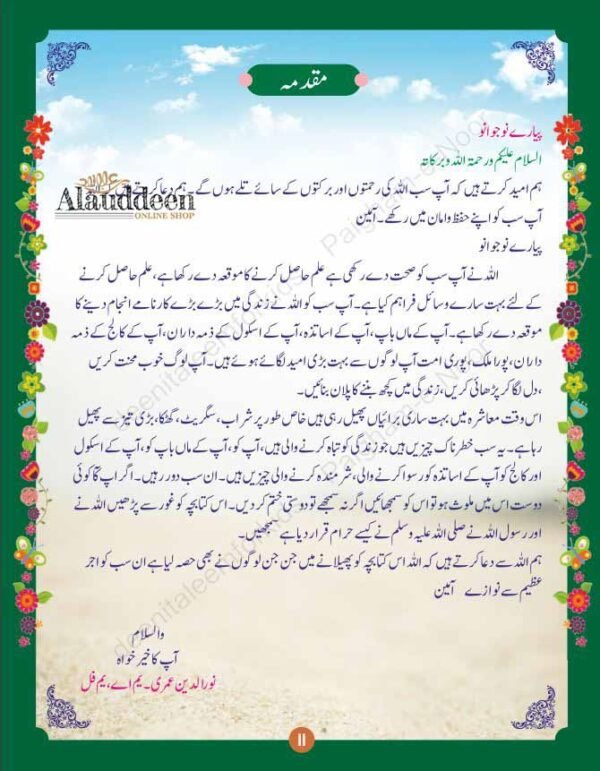 مقدمہ
پیارے نوجوانو
السلام علیکم ورحمۃ اللہ وبرکاتہ
ہم امید کرتے ہیں کہ آپ سب اللہ کی رحمتوں اور برکتوں کے سائے تلے ہوں گے۔ ہم دعا کرتے ہیں
Alauddeen
ONLINE SHOP
آپ سب کو اپنے حفظ و امان میں رکھے۔ آمین
پیارے نوجوانو
اللہ نے آپ سب کو صحت دے رکھی ہے علم حاصل کرنے کا موقعہ دے رکھا ہے، علم حاصل کرنے
کے لئے بہت سارے وسائل فراہم کیا ہے۔ آپ سب کو اللہ نے زندگی میں بڑے بڑے کارنامے انجام دینے کا
موقعہ دے رکھا ہے۔ آپ کے ماں باپ، آپ کے اساتذہ، آپ کے اسکول کے ذمہ داران، آپ کے کالج کے ذمہ
داران، پورا ملک، پوری امت آپ لوگوں سے بہت بڑی امید لگائے ہوئے ہیں۔ آپ لوگ خوب محنت کریں
،دل لگا کر پڑھائی کریں، زندگی میں کچھ بننے کا پلان بنائیں۔
اس وقت معاشرہ میں بہت ساری برائیاں پھیل رہی ہیں خاص طور پر شراب، سگریٹ، گھٹکا، بڑی تیزی سے پھیل
رہا ہے۔ یہ سب خطرناک چیزیں ہیں جو زندگی کو تباہ کرنے والی ہیں، آپ کو، آپ کے ماں باپ کو، آپ کے اسکول
اور کالج کو آپ کے اساتذہ کو رسوا کرنے والی، شرمندہ کرنے والی چیزیں ہیں۔ ان سب دور رہیں۔ اگر اپ کا کوئی
دوست اس میں ملوث ہو تو اس کو سمجھائیں اگر نہ سمجھے تو دوستی ختم کر دیں۔ اس کتابچہ کو غور سے پڑھیں اللہ نے
اور رسول اللہ نے صلی اللہ علیہ وسلم نے کیسے حرام قرار دیا ہے سمجھیں۔
ہم اللہ سے دعا کرتے ہیں کہ اللہ اس کتابچہ کو پھیلانے میں جن جن لوگوں نے بھی حصہ لیا ہے ان سب کو اجر
عظیم سے نوازے آمین
والسلام
آپ کا خیر خواہ
نور الدین عمری۔ یم اے، یم فل
II